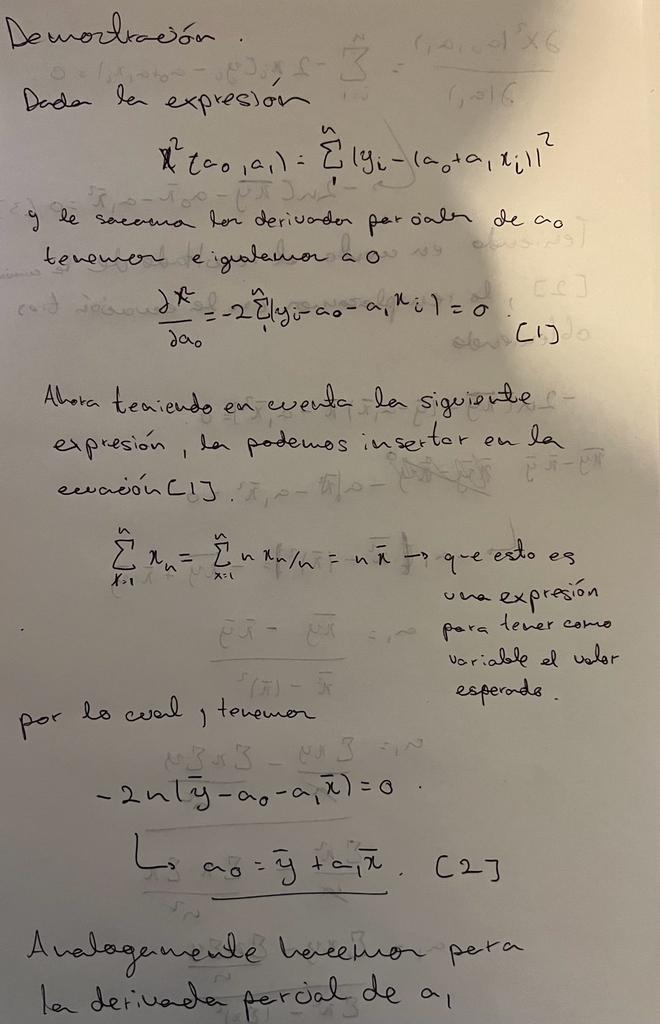 Demostración.
Dada la expresión
χ²(a₀,a₁) = Σ₁ⁿ (yᵢ-(a₀+a₁xᵢ))²
y le sacamos las derivadas parciales de a₀
tenemos e igualamos a 0
∂χ²/∂a₀ = -2 Σ₁ⁿ (yᵢ-a₀-a₁xᵢ) = 0. [1]
Ahora teniendo en cuenta la siguiente
expresión, la podemos insertar en la
ecuación [1].
Σₓ₌₁ⁿ xₙ = Σₓ₌₁ⁿ n xₙ/n = n x̄ → que esto es
una expresión
para tener como
variable el valor
esperado.
por lo cual, tenemos
-2n(ȳ-a₀-a₁x̄) = 0.
↳ a₀ = ȳ + a₁x̄. [2]
Analogamente hacemos para
la derivada parcial de a₁